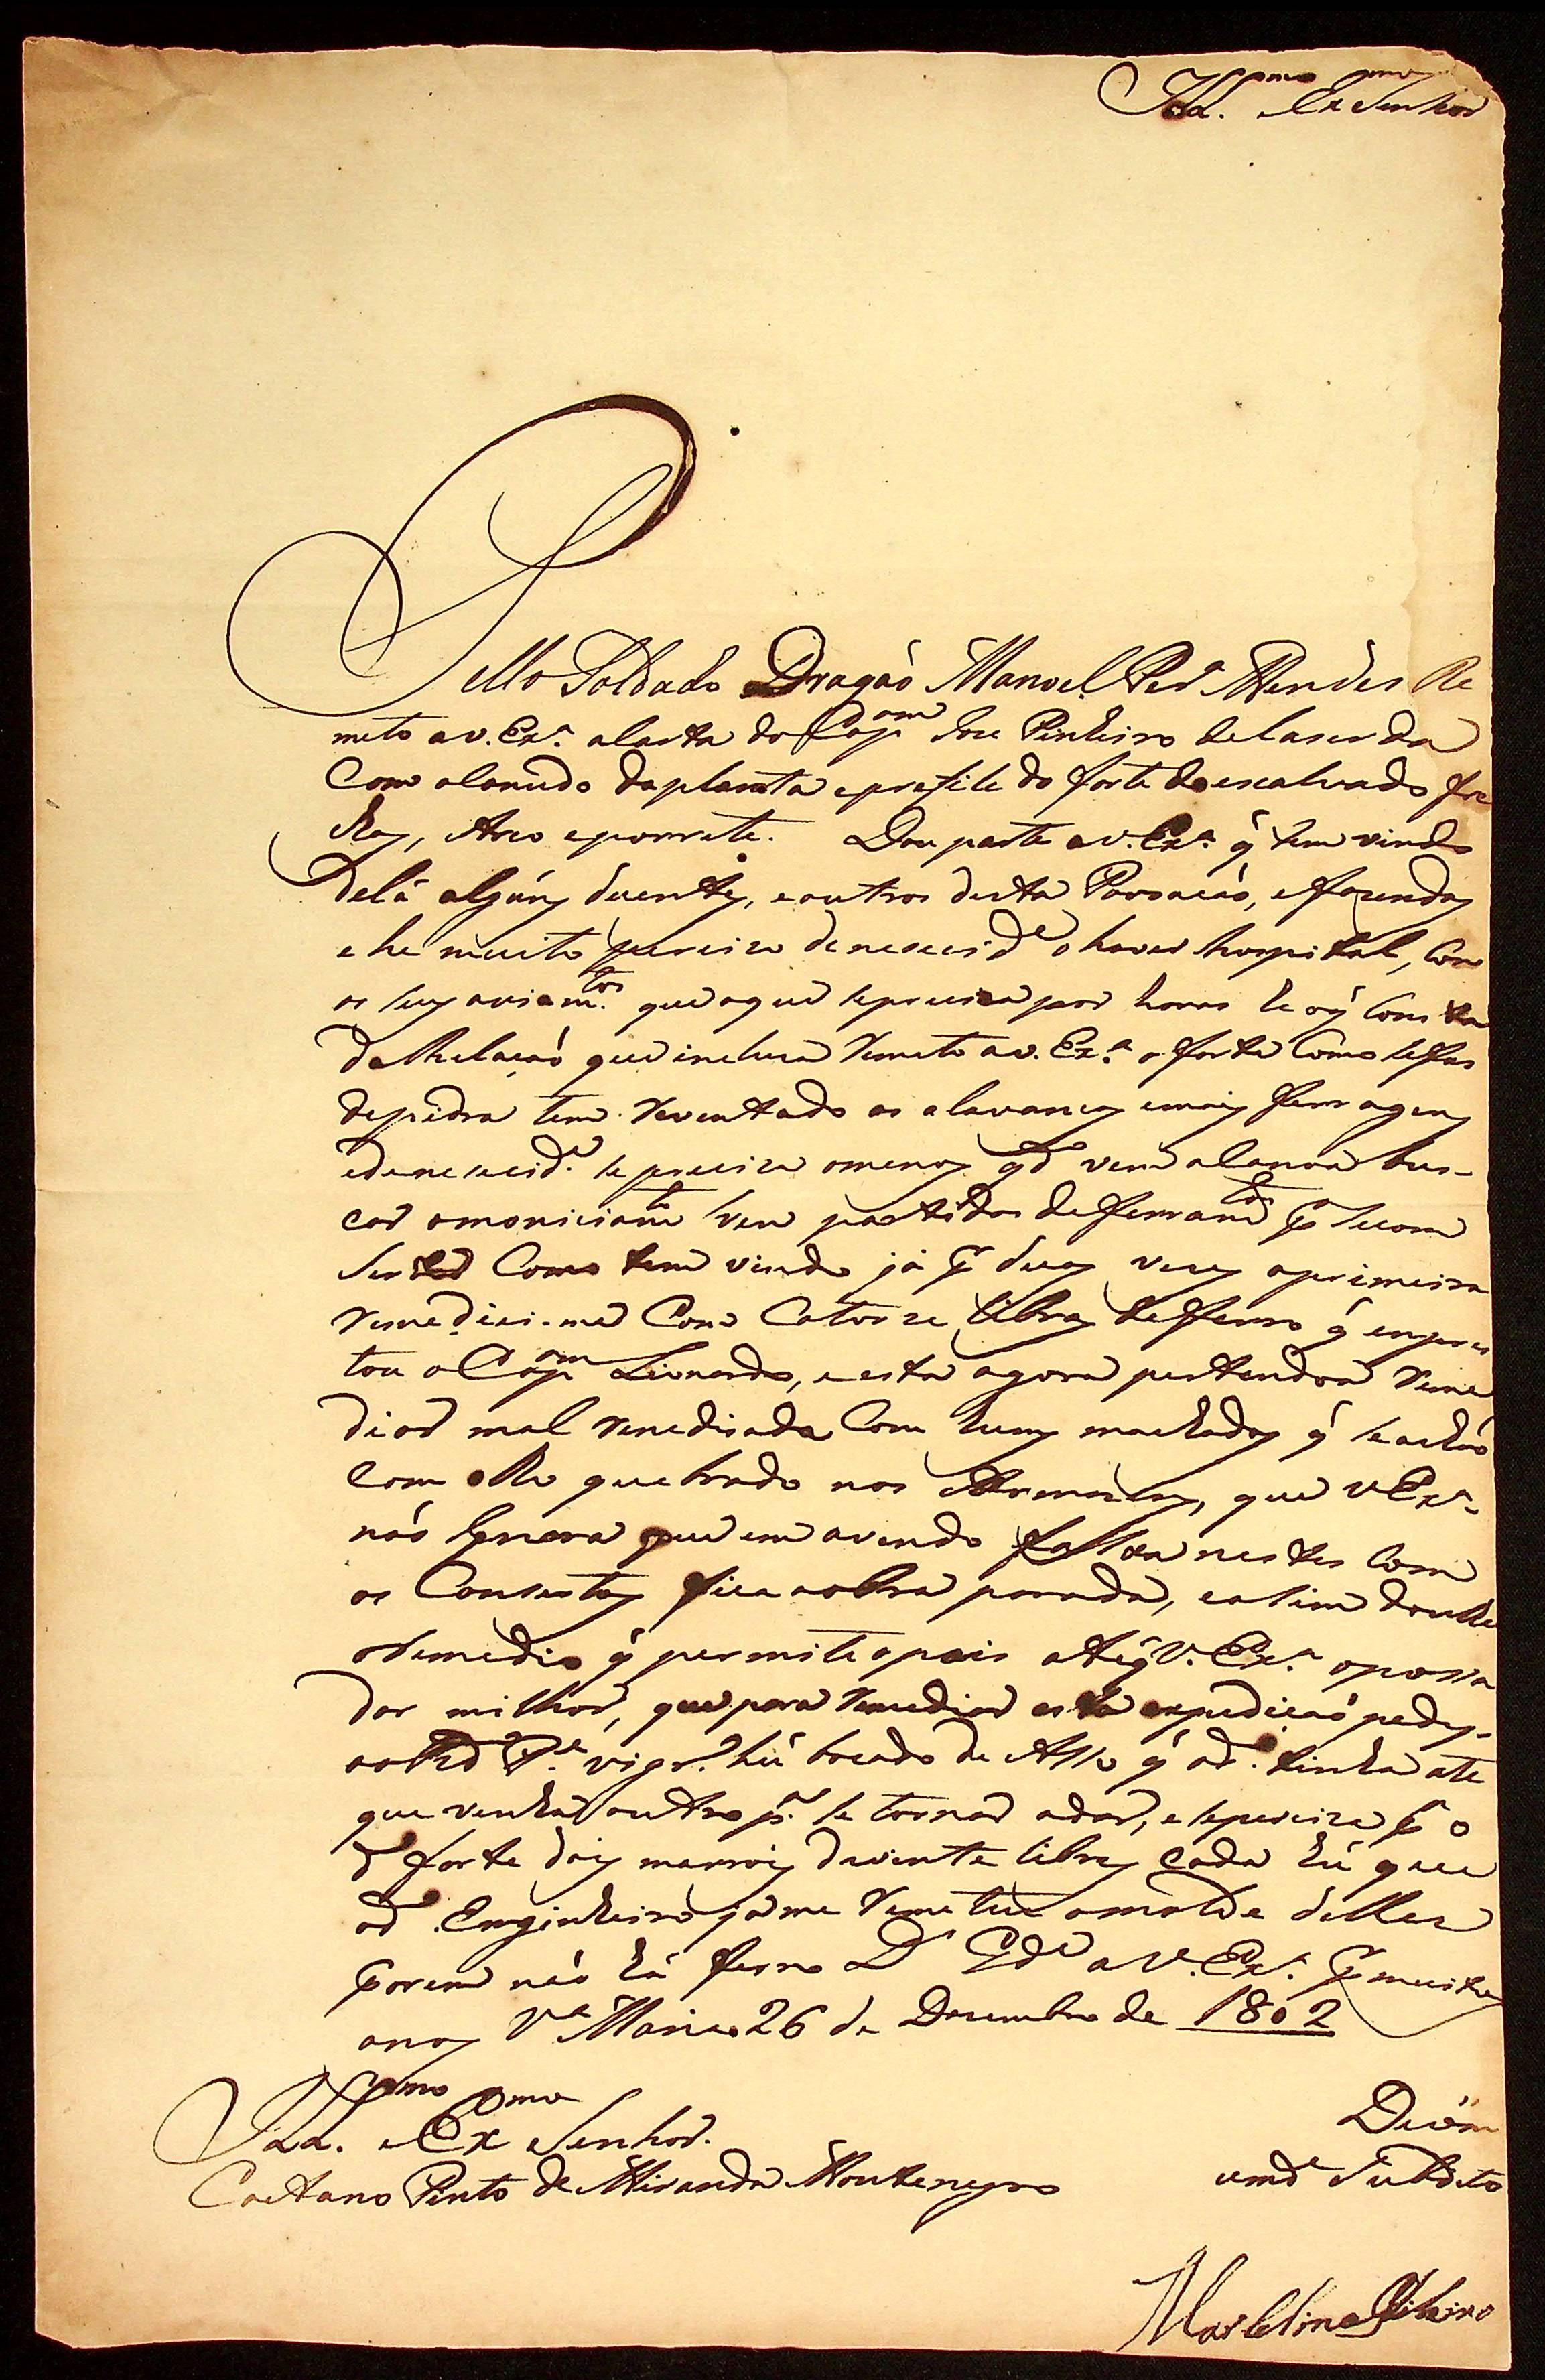 Ill.mo Ex.mo Senhor
Pello Soldado Dragaõ Manoel Per.ª Mendes Re
meto a V. Ex.ª a Carta do Cap.am Joze Pinheiro de Lacerda
Com o Canudo da planta e prefile do forte do escalvado fre
chas, Arco e porrete. Dou parte a V. Ex.ª q̃ tem vindo
de lá algúns duentes, e outros desta Povoacaõ, e fazendas
e he muito preciza de necesid.e o haver hospital, Com
os seus aviam.tos que o que se preciza por horas he o q̃ Consta
da Relaçaõ que incluza Remeto a V. Ex.ª o forte Como se fas
de pedra tem reventado as alavancas e mais ferragens
e de necesid.e se preciza o menos q.do vem a Canoa bus-
car o moniciam.to ven partidas de ferram.tas p.ª se com
sertar Como tem vindo já p.r duas vezes a primeira
remediei-me Com Catorze libras de ferro q̃ enpres
tou o Cap.am Leonardo, e esta agora pertendra reme
diar mal remediada Com huns machados q̃ se achaõ
Com o olho quebrado nos Armazens, que V Ex.ª
naõ Ignora que em avendo falta nestes Com
os Consertos fica a obra parada, e asim doulhe
o remedio q̃ permite o pais athe q̃ V. Ex.ª o possa
dar milhor, que para remediar esta expediçaõ pedy-
ao R.d P.e vigr.º hú bocado de Asso q̃ o d.º tinha ate
que venha outro p.ª se tornar a dar, e se preciza p.ª o
d.º forte dois marrois de vinte libras cada hú que
o d.º Enginheiro ja me remeteu o molde delles
porem naõ há ferro D.s G.de a V. Ex.ª p.r muitos
anos V.ª Maria 26 de Dezembro de 1802
Ill.mo e Ex.mo Senhor.
Caetano Pinto de Miranda Montenegro
De V Ex.ª
umd.e Subdito